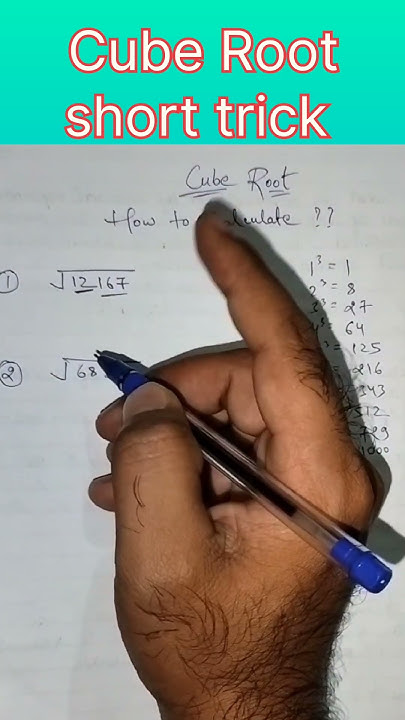 Cube Root
short trick
Cube Root
How to Calculate ??
1 √12167
2 √68
1³ = 1
2³ = 8
3³ = 27
4³ = 64
³ = 125
= 216
343
512
729
1000